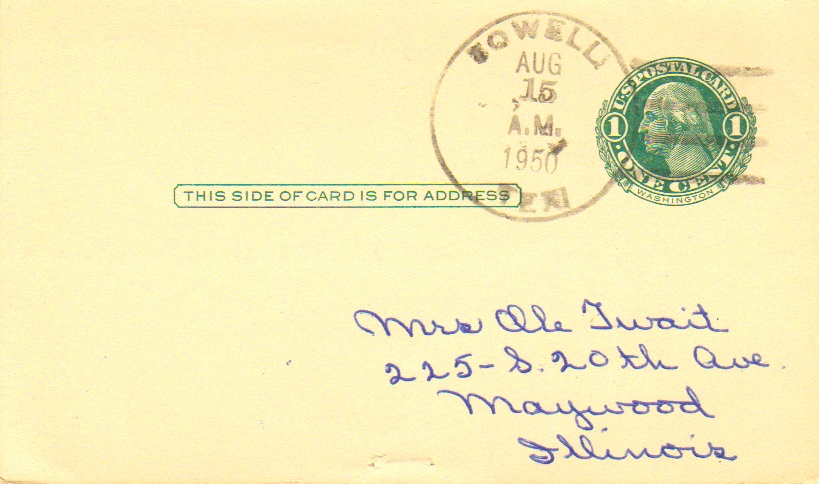 AUG
15
A.M.
1950
U.S. POSTAL CARD
1 1
ONE CENT
WASHINGTON
THIS SIDE OF CARD IS FOR ADDRESS
Mrs Ole Twait
225-S. 20th Ave.
Maywood
Illinois